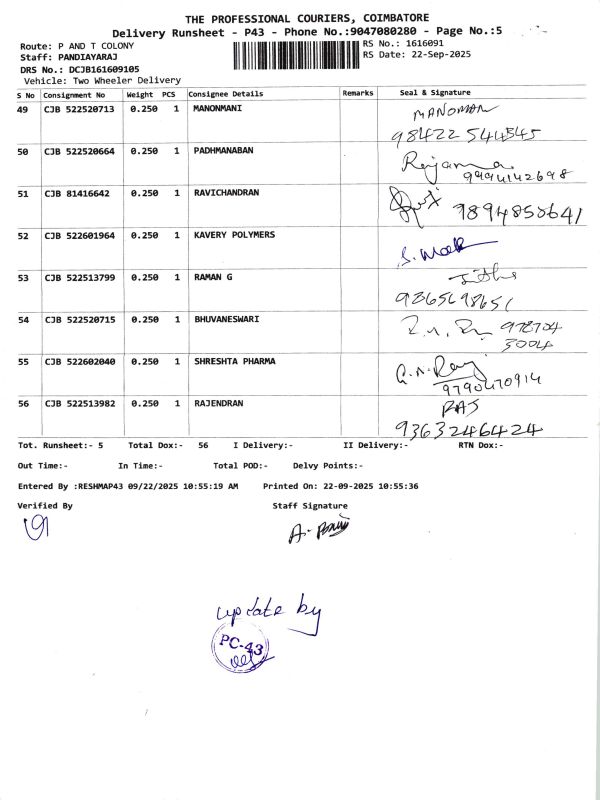 THE PROFESSIONAL COURIERS, COIMBATORE
Delivery Runsheet - P43 - Phone No.:9047080280 - Page No.:5
Route: P AND T COLONY
RS No.: 1616091
Staff: PANDIAYARAJ
RS Date: 22-Sep-2025
DRS No.: DCJB161609105
Vehicle: Two Wheeler Delivery
S No Consignment No Weight PCS Consignee Details Remarks Seal & Signature
49 CJB 522520713 0.250 1 MANONMANI MANOMAN
98422 544345
50 CJB 522520664 0.250 1 PADHMANABAN
9994142698
51 CJB 81416642 0.250 1 RAVICHANDRAN
9894858641
52 CJB 522601964 0.250 1 KAVERY POLYMERS
53 CJB 522513799 0.250 1 RAMAN G
9365698651
54 CJB 522520715 0.250 1 BHUVANESWARI
978704
3004
55 CJB 522602040 0.250 1 SHRESHTA PHARMA
9790470914
56 CJB 522513982 0.250 1 RAJENDRAN RAJ
9363246424
Tot. Runsheet:- 5 Total Dox:- 56 I Delivery:- II Delivery:- RTN Dox:-
Out Time:- In Time:- Total POD:- Delvy Points:-
Entered By :RESHMAP43 09/22/2025 10:55:19 AM Printed On: 22-09-2025 10:55:36
Verified By Staff Signature
update by
PC-43